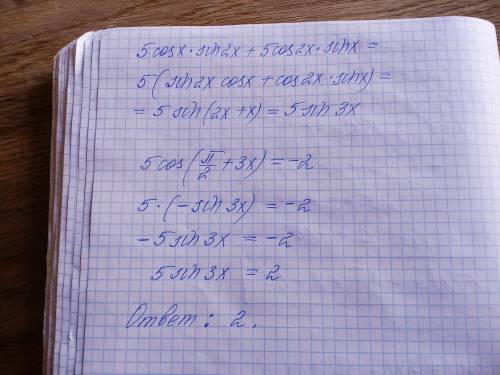 5cosx·sin2x + 5cos2x·sinx =
5(sin2x cosx + cos2x·sinx) =
= 5 sin(2x + x) = 5 sin 3x
5 cos(π/2 + 3x) = -2
5·(-sin 3x) = -2
-5 sin 3x = -2
5 sin 3x = 2
Ответ: 2.